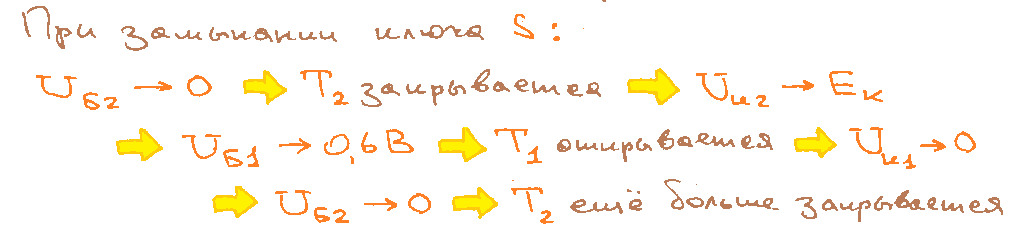 При замыкании ключа S:
U Б2 → 0 ➡ T2 закрывается ➡ U к2 → E к
➡ U Б1 → 0,6В ➡ T1 открывается ➡ U к1 → 0
➡ U Б2 → 0 ➡ T2 ещё больше закрывается